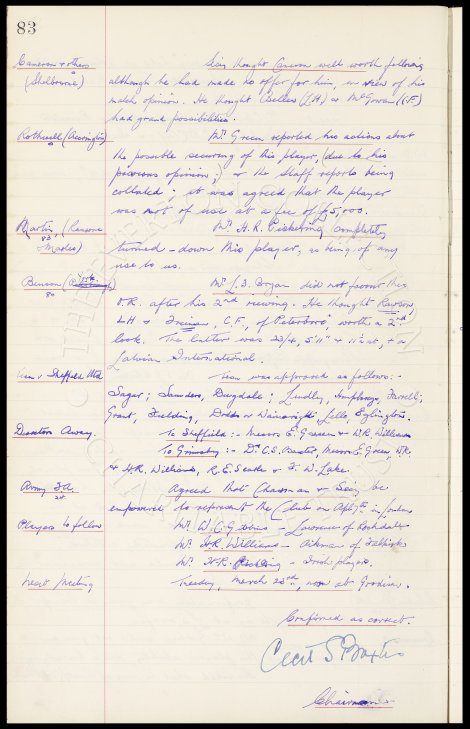 83
Cameron & others Secy thought Cameron well worth following
(Shelbourne) although he had made no offer for him, in view of his
match opinion. He thought (L.H.) & McGowan (C.F)
had grand possibilities.
Rothwell (Accrington) Mr. Green reported his actions about
the possible securing of this player, (due to his
previous opinion;) & the Staff reports being
collated; it was agreed that the player
was not of use at a fee of £5,000.
Martin, (Rangers Mr. H.R. Pickering completely
turned-down this player, as being of any
use to us.
Benson ( Mr. J.S. did not favour this
O.R. after his 2nd viewing. He thought Rawson,
L.H & , C.F., of Peterboro', worth a 2nd
look. The latter was 22/4, 5'11" & 11st, & a
Latvian International.
Team v Sheffield Utd Team was approved as follows:-
Sagar; Saunders, Dugdale; Lindley, Humphreys, Farrell;
Grant, Fielding, Dodds or Wainwright, Lello, Eglington.
Directors Away. To Sheffield:- Messrs E. Green & W.R. Williams
To Grimsby:- Dr. C.S. Baxter, Messrs E. Green, W.R
& H.R. Williams, R.E. Searle & F. W. Lake.
Army F.A. Agreed that Chairman & Secy be
empowered to represent the Club on Apl 5th in London
Players to follow Mr. W.C. - Lawrence of Rochdale
Mr. W.R. Williams - Aikman of Falkirk
Mr. H.R. Pickering - Irish players.
Next Meeting Tuesday, March 28th, noon at Goodison.
Confirmed as correct.
Cecil S Baxter
Chairman